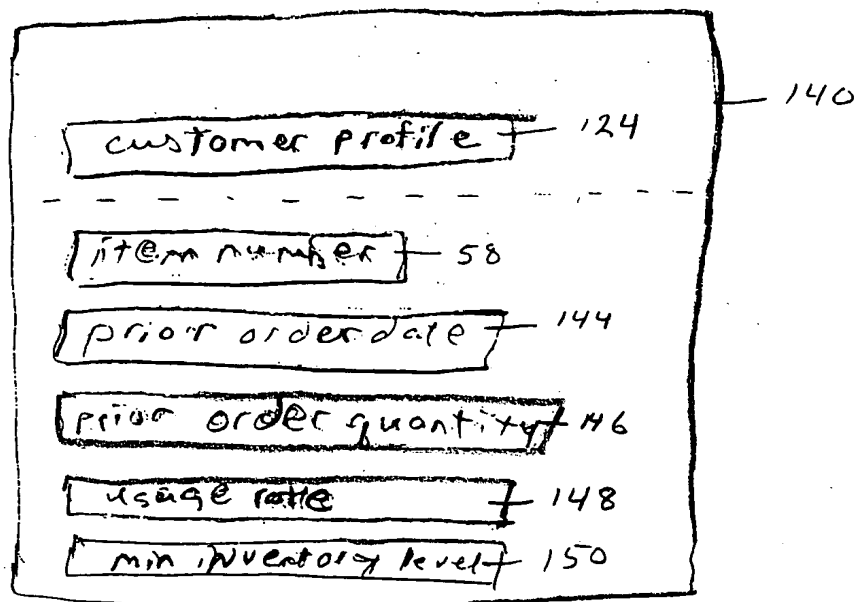 140
customer profile 124
item number 58
prior order date 144
prior order quantity 146
usage rate 148
min inventory level 150